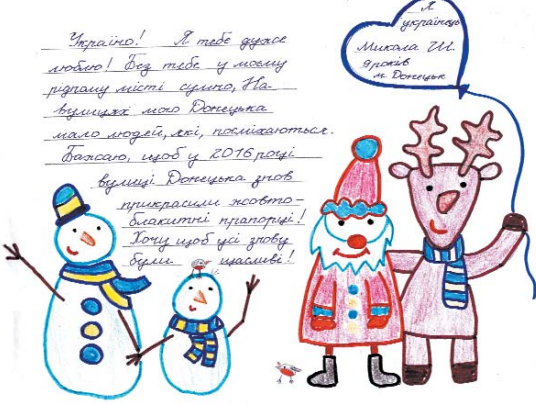 Україно! Я тебе дуже
люблю! Без тебе у моєму
рідному місті сумно, На
вулицях мого Донецька
мало людей, які, посміхаються.
Бажаю, щоб у 2016 році
вулиці Донецька знов
прикрасили жовто-
блакитні прапорці!
Хочу щоб усі знову
були щасливі!
Я
українець
Микола Ш.
9 років
м. Донецьк